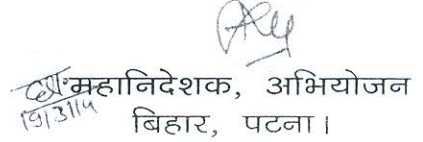 महानिदेशक, अभियोजन
19/3/14
बिहार, पटना।